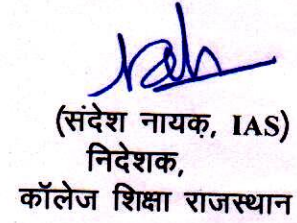 (संदेश नायक, IAS)
निदेशक,
कॉलेज शिक्षा राजस्थान